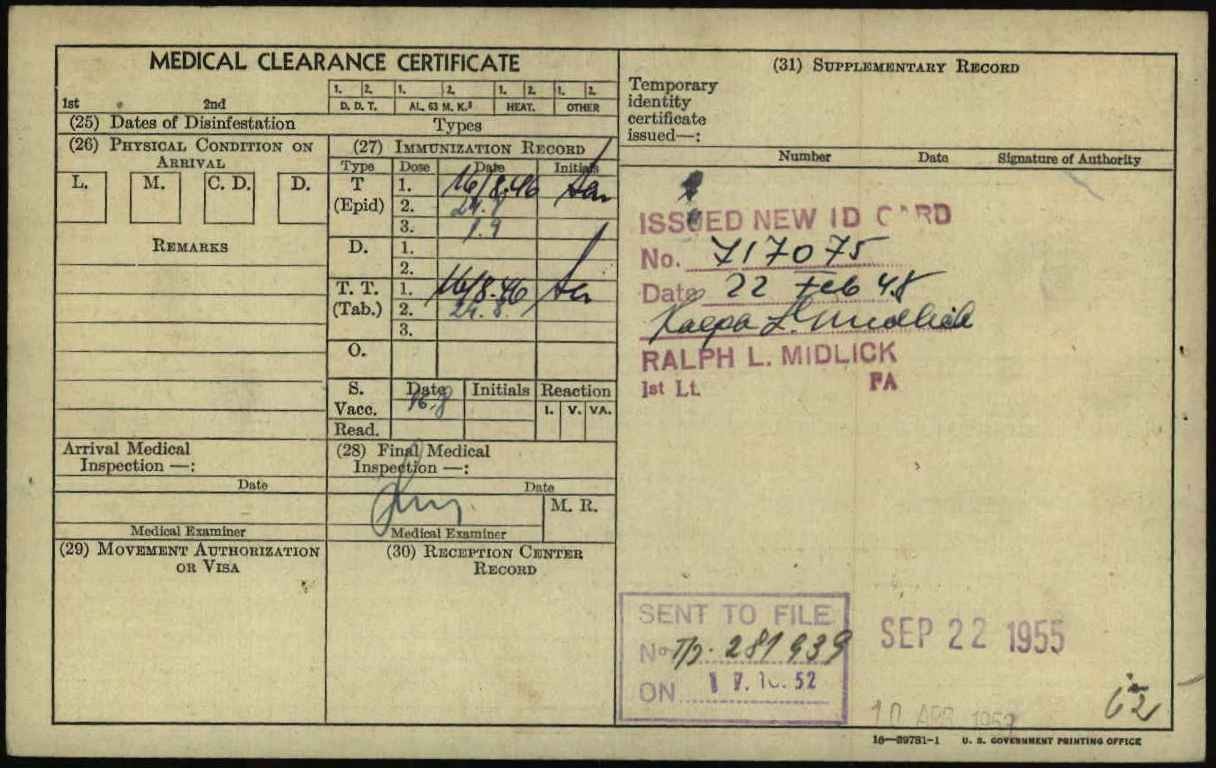 MEDICAL CLEARANCE CERTIFICATE
1. 2. 1. 2. 1. 2. 1. 2.
1st 2nd D. D. T. AL. 63 M. K.³ HEAT. OTHER
(25) Dates of Disinfestation Types
(26) PHYSICAL CONDITION ON ARRIVAL
L. M. C. D. D.
REMARKS
(27) IMMUNIZATION RECORD
Type Dose Date Initials
T (Epid) 1. 16/8.46
2. 24.
3. 1.9
D. 1.
2.
T. T. (Tab.) 1. 16/8.46
2. 24.8.
3.
O.
S. Date Initials Reaction
Vacc. 16.8 I. V. VA.
Read.
Arrival Medical
Inspection —:
Date
Medical Examiner
(28) Final Medical
Inspection —:
Date
M. R.
Medical Examiner
(29) MOVEMENT AUTHORIZATION
OR VISA
(30) RECEPTION CENTER
RECORD
(31) SUPPLEMENTARY RECORD
Temporary
identity
certificate
issued—:
Number Date Signature of Authority
ISSUED NEW ID CARD
No. 717075
Date 22 Feb 48
Ralph L. Midlick
RALPH L. MIDLICK
1st Lt. FA
SENT TO FILE
No T/D. 281939
ON 17.10.52
SEP 22 1955
10 APR
62
16—39781-1 U. S. GOVERNMENT PRINTING OFFICE